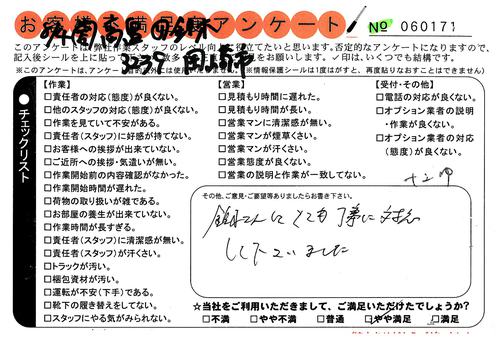 お客様 満 アンケート
№ 060171
このアンケートは、弊社作業スタッフのレベル向上に役立てたいと思います。否定的なアンケートになりますので、
記入後シールを上に貼って をお願いします。✓印は、いくつでも結構です。
※このアンケートは、アンケート 以外には使用 ません。※情報保護シールは1度はがすと、再度貼りなおすことはできません)
● チェックリスト
【作業】
□責任者の対応(態度)が良くない。
□他のスタッフの対応(態度)が良くない。
□作業を見ていて不安がある。
□責任者(スタッフ)に好感が持てない。
□お客様への挨拶が出来ていない。
□ご近所への挨拶・気遣いが無い。
□作業開始前の内容確認がなかった。
□作業開始時間が遅れた。
□荷物の取り扱いが雑である。
□お部屋の養生が出来ていない。
□作業時間が長すぎる。
□責任者(スタッフ)に清潔感が無い。
□責任者(スタッフ)が汗くさい。
□トラックが汚い。
□梱包資材が汚い。
□運転が不安(下手)である。
□靴下の履き替えをしてない。
□スタッフにやる気がみられない。
【営業】
□見積もり時間に遅れた。
□見積もり時間が長い。
□営業マンに清潔感が無い。
□営業マンが煙草くさい。
□営業マンが汗くさい。
□営業態度が良くない。
□営業の説明と作業が一致してない。
【受付・その他】
□電話の対応が良くない。
□オプション業者の説明
・作業が良くない。
□オプション業者の対応
(態度)が良くない。
その他、ご意見・ご要望等ありましたらお書き下さい。
全員さんにとても丁寧に対応
して下さいました
☆当社をご利用いただきまして、ご満足いただけたでしょうか?
□不満 □やや不満 □普通 □やや満足 □満足